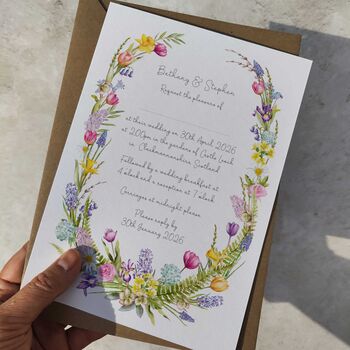 Bethany & Stephen
Request the pleasure of
at their wedding on 30th April 2026
at 2:00pm in the gardens of Castle
in Clackmannanshire, Scotland
Followed by a wedding breakfast at
4 o'clock and a reception at 7 o'clock
Carriages at midnight please
Please reply by
30th January 2026